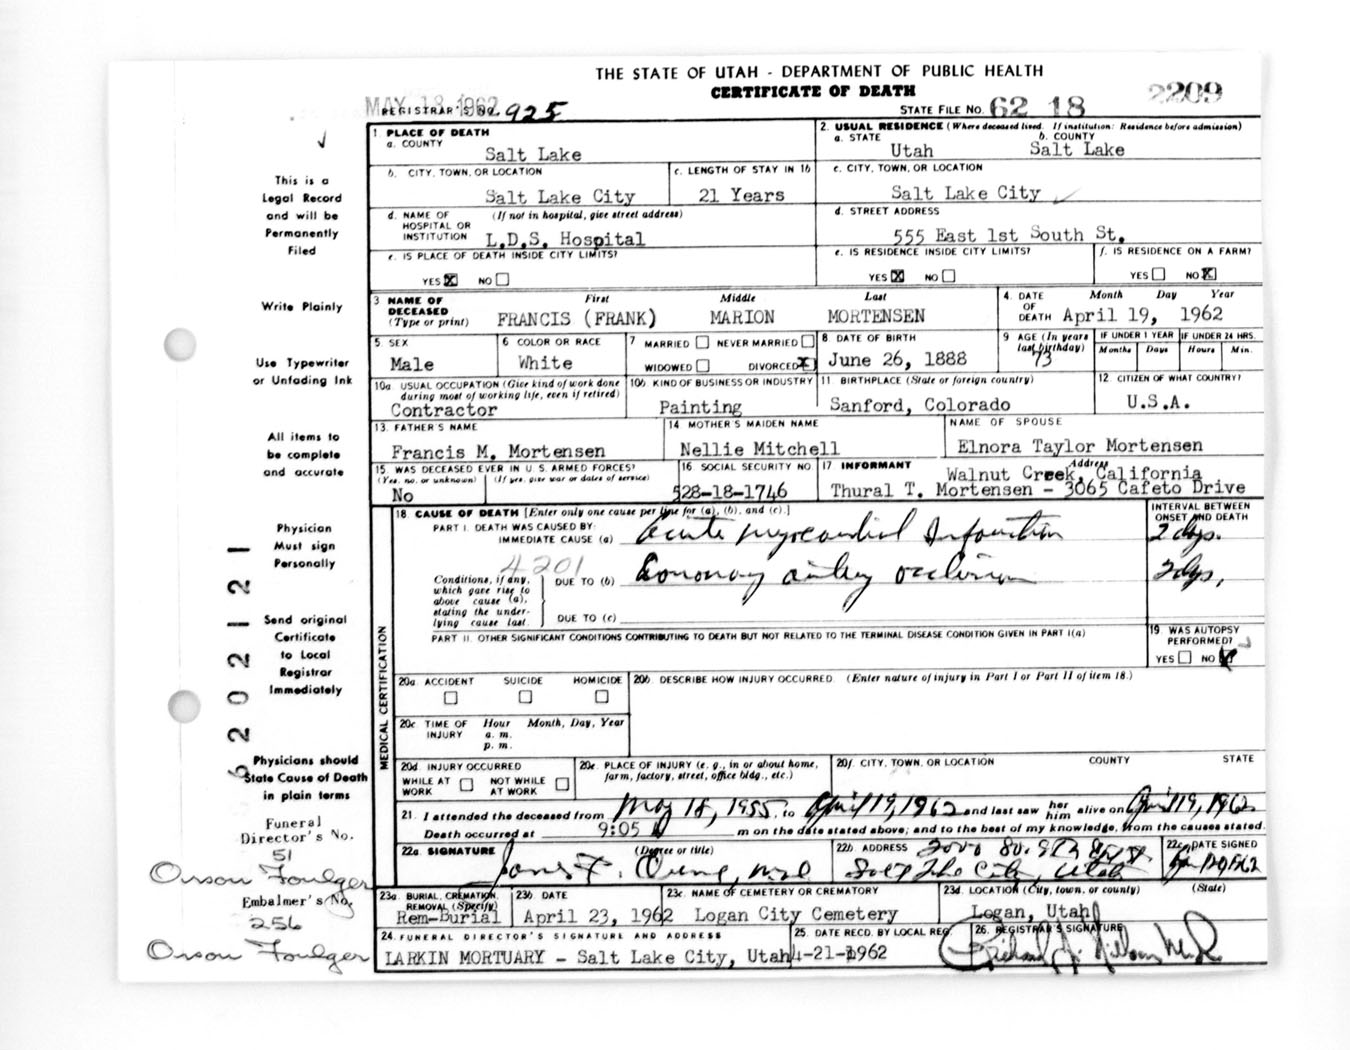 THE STATE OF UTAH - DEPARTMENT OF PUBLIC HEALTH
CERTIFICATE OF DEATH
2209
MAY 18 1962
REGISTRAR'S NO. 925
STATE FILE NO. 62 18
1 PLACE OF DEATH
a. COUNTY
Salt Lake
2. USUAL RESIDENCE (Where deceased lived. If institution: Residence before admission)
a. STATE b. COUNTY
Utah Salt Lake
b. CITY, TOWN, OR LOCATION
Salt Lake City
c. LENGTH OF STAY IN 1b
21 Years
c. CITY, TOWN, OR LOCATION
Salt Lake City
d. NAME OF HOSPITAL OR INSTITUTION (If not in hospital, give street address)
L.D.S. Hospital
d. STREET ADDRESS
555 East 1st South St.
e. IS PLACE OF DEATH INSIDE CITY LIMITS?
YES X NO
e. IS RESIDENCE INSIDE CITY LIMITS?
YES X NO
f. IS RESIDENCE ON A FARM?
YES NO X
3 NAME OF DECEASED (Type or print)
First Middle Last
FRANCIS (FRANK) MARION MORTENSEN
4. DATE OF DEATH Month Day Year
April 19, 1962
5 SEX
Male
6 COLOR OR RACE
White
7 MARRIED NEVER MARRIED
WIDOWED DIVORCED X
8 DATE OF BIRTH
June 26, 1888
9 AGE (In years last birthday)
73
IF UNDER 1 YEAR IF UNDER 24 HRS.
Months Days Hours Min.
10a USUAL OCCUPATION (Give kind of work done during most of working life, even if retired)
Contractor
10b KIND OF BUSINESS OR INDUSTRY
Painting
11 BIRTHPLACE (State or foreign country)
Sanford, Colorado
12 CITIZEN OF WHAT COUNTRY?
U.S.A.
13. FATHER'S NAME
Francis M. Mortensen
14 MOTHER'S MAIDEN NAME
Nellie Mitchell
NAME OF SPOUSE
Elnora Taylor Mortensen
15 WAS DECEASED EVER IN U.S. ARMED FORCES?
(Yes, no, or unknown) (If yes, give war or dates of service)
No
16 SOCIAL SECURITY NO.
528-18-1746
17 INFORMANT Address
Walnut Creek, California
Thural T. Mortensen - 3065 Cafeto Drive
18 CAUSE OF DEATH [Enter only one cause per line for (a), (b), and (c).]
INTERVAL BETWEEN ONSET AND DEATH
PART I. DEATH WAS CAUSED BY:
IMMEDIATE CAUSE (a) Acute Myocardial Infarction 2 dys.
4201
Conditions, if any, which gave rise to above cause (a), stating the underlying cause last.
DUE TO (b) Coronary artery occlusion 2 dys.
DUE TO (c)
PART II. OTHER SIGNIFICANT CONDITIONS CONTRIBUTING TO DEATH BUT NOT RELATED TO THE TERMINAL DISEASE CONDITION GIVEN IN PART I(a)
19. WAS AUTOPSY PERFORMED?
YES NO
MEDICAL CERTIFICATION
20a. ACCIDENT SUICIDE HOMICIDE
20b. DESCRIBE HOW INJURY OCCURRED. (Enter nature of injury in Part I or Part II of item 18.)
20c TIME OF INJURY Hour Month, Day, Year
a. m.
p. m.
20d INJURY OCCURRED
WHILE AT WORK NOT WHILE AT WORK
20e. PLACE OF INJURY (e. g., in or about home, farm, factory, street, office bldg., etc.)
20f. CITY, TOWN, OR LOCATION COUNTY STATE
21. I attended the deceased from May 18, 1955, to April 19, 1962 and last saw her him alive on April 19, 1962
Death occurred at 9:05 m on the date stated above; and to the best of my knowledge, from the causes stated.
22a. SIGNATURE (Degree or title)
22b. ADDRESS
Salt Lake City, Utah
22c. DATE SIGNED
23a. BURIAL, CREMATION, REMOVAL (Specify)
Rem-Burial
23b DATE
April 23, 1962
23c. NAME OF CEMETERY OR CREMATORY
Logan City Cemetery
23d. LOCATION (City, town, or county) (State)
Logan, Utah
24. FUNERAL DIRECTOR'S SIGNATURE AND ADDRESS
LARKIN MORTUARY - Salt Lake City, Utah
25. DATE RECD. BY LOCAL REG.
4-21-1962
26. REGISTRAR'S SIGNATURE
This is a
Legal Record
and will be
Permanently
Filed
Write Plainly
Use Typewriter
or Unfading Ink
All items to
be complete
and accurate
Physician
Must sign
Personally
Send original
Certificate
to Local
Registrar
Immediately
Physicians should
State Cause of Death
in plain terms
Funeral
Director's No.
51
Orson Foulger
Embalmer's No.
256
Orson Foulger